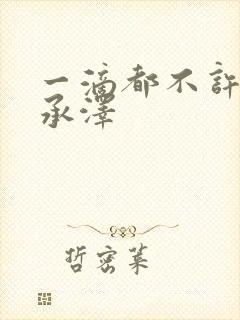 一滴都不許
承澤
哲密萊